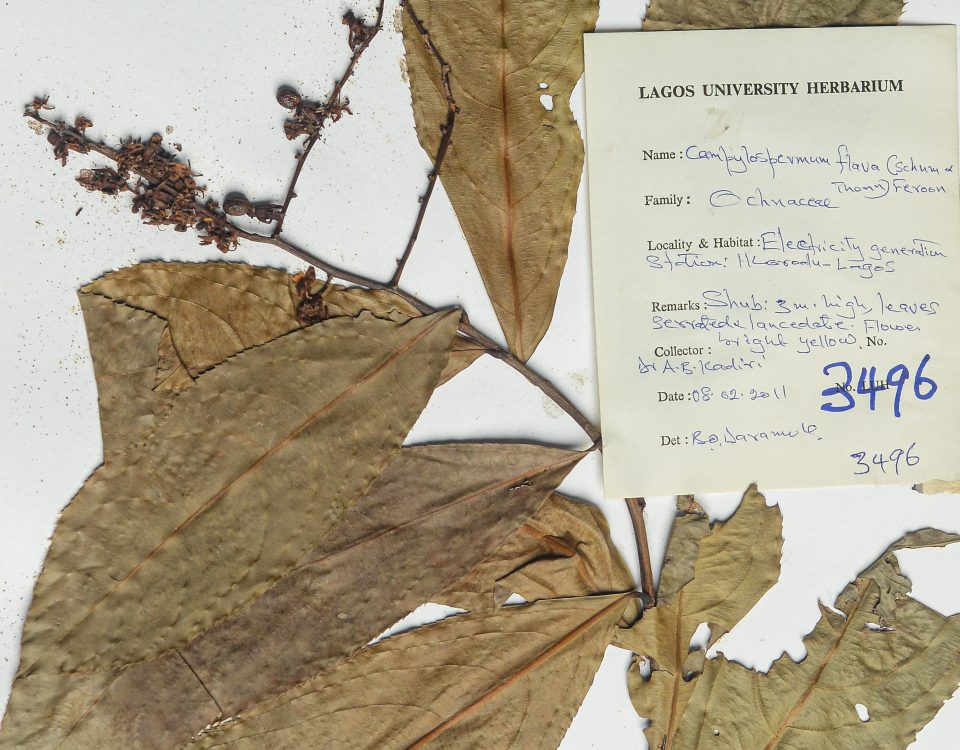 LAGOS UNIVERSITY HERBARIUM
Name: Campylospermum flava (Schum &
Thonn) Feroon
Family: Ochnaceae
Locality & Habitat: Electricity generation
Station: Ikorodu-Lagos
Remarks: Shub: 3m. high, leaves
Serratede lancedate. Flower
bright yellow. No.
Collector:
Dr A.B. Kadiri
No. LUH
3496
Date: 08.02.2011
Det: B.O. Daramola
3496